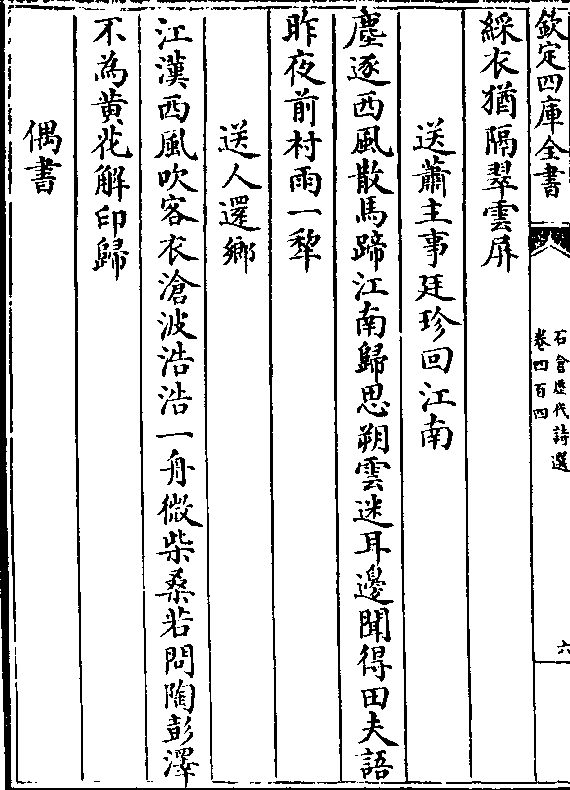 欽定四庫全書
石倉歷代詩選
卷四百四
六
綵衣猶隔翠雲屏
送蕭主事廷珍回江南
塵逐西風散馬蹄江南歸思朔雲迷耳邊聞得田夫語
昨夜前村雨一犂
送人還鄉
江漢西風吹客衣滄波浩浩一舟微柴桑若問陶彭澤
不為黄花解印歸
偶書